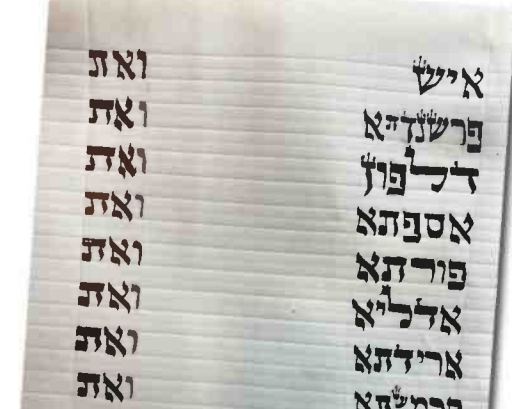 איש ואת
פרשנדתא ואת
דלפון ואת
אספתא ואת
פורתא ואת
אדליא ואת
ארידתא ואת
פרמשתא ואת